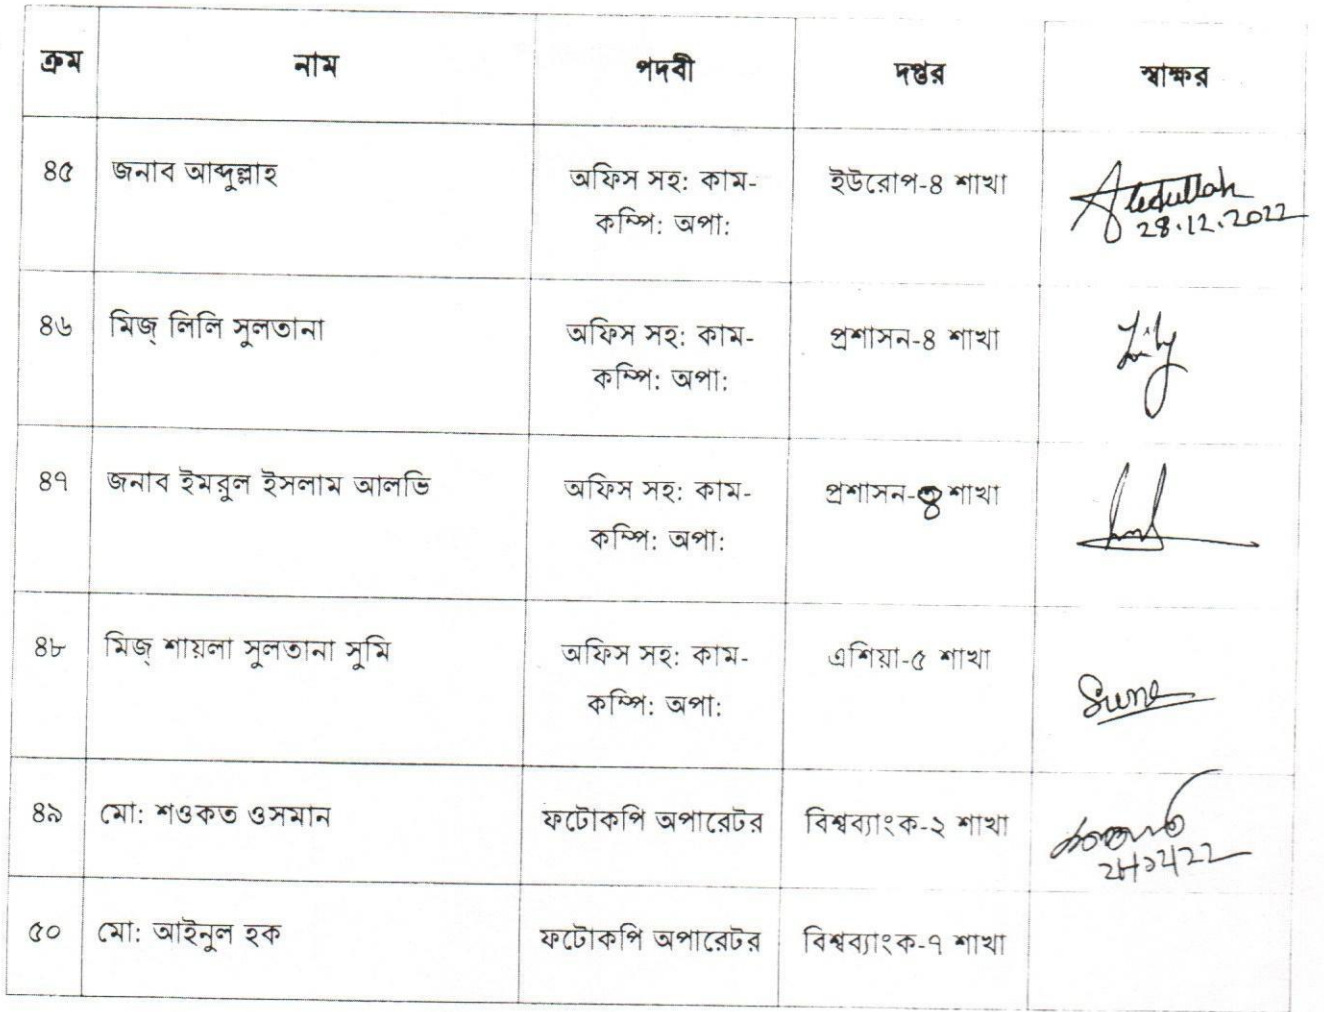 ক্রম নাম পদবী দপ্তর স্বাক্ষর
৪৫ জনাব আব্দুল্লাহ অফিস সহ: কাম- ইউরোপ-৪ শাখা Abdullah
কম্পি: অপা: 28.12.2022
৪৬ মিজ্ লিলি সুলতানা অফিস সহ: কাম- প্রশাসন-৪ শাখা Lily
কম্পি: অপা:
৪৭ জনাব ইমরুল ইসলাম আলভি অফিস সহ: কাম- প্রশাসন-৪ শাখা
কম্পি: অপা:
৪৮ মিজ্ শায়লা সুলতানা সুমি অফিস সহ: কাম- এশিয়া-৫ শাখা
কম্পি: অপা:
৪৯ মো: শওকত ওসমান ফটোকপি অপারেটর বিশ্বব্যাংক-২ শাখা
৫০ মো: আইনুল হক ফটোকপি অপারেটর বিশ্বব্যাংক-৭ শাখা